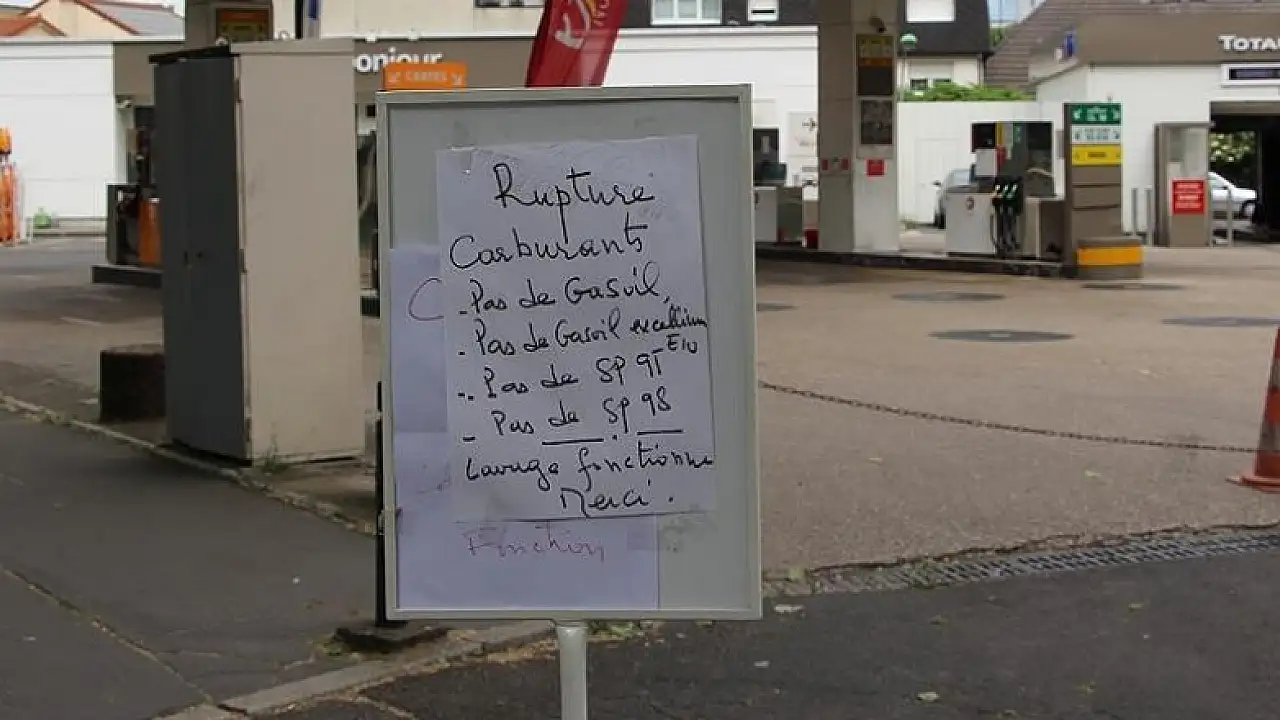 Bonjour
CARTES
TOTAL
Rupture
Carburants
- Pas de Gasoil,
- Pas de Gasoil excellium
- Pas de SP 95 E10
- Pas de SP 98
Lavage fonctionne
Merci.
Fonction